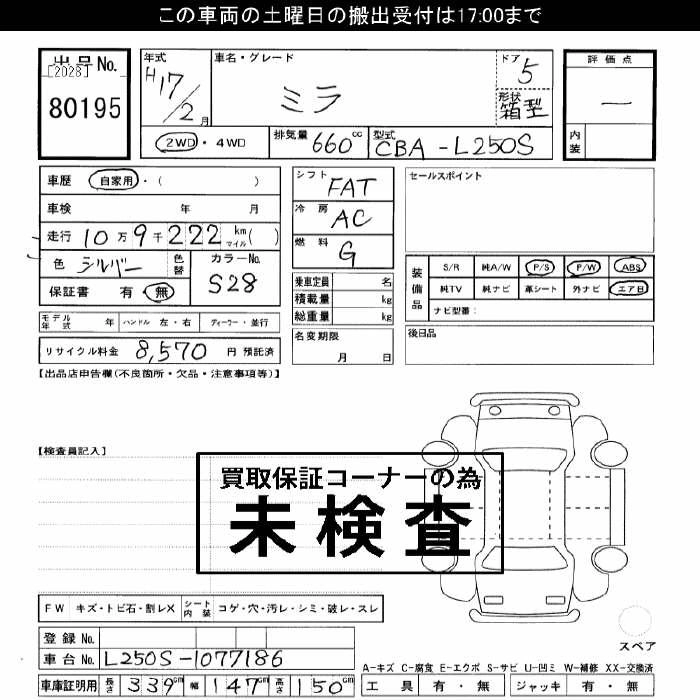 この車両の土曜日の搬出受付は17:00まで
出品No.
[2028]
80195
年式
H17/2月
車名・グレード
ミラ
ドア
5
形状
箱型
2WD・4WD
排気量 660cc
型式 CBA-L250S
評価点
一
内装
車歴 自家用・( )
車検 年 月
走行 10万9千222 km マイル( )
色 シルバー 色替 カラーNo. S28
保証書 有・無
モデル年式 年 ハンドル 左・右 ディーラー・並行
リサイクル料金 8,570 円 預託済
シフト FAT
冷房 AC
燃料 G
乗車定員 名
積載量 kg
総重量 kg
名変期限
月 日
セールスポイント
装備品
S/R 純A/W P/S P/W ABS
純TV 純ナビ 革シート 外ナビ エアB
ナビ型番:
後日品
【出品店申告欄(不良箇所・欠品・注意事項等)】
【検査員記入】
買取保証コーナーの為
未検査
FW キズ・トビ石・割レX シート内装 コゲ・穴・汚レ・シミ・破レ・スレ
登録No.
車台No. L250S-1077186
車庫証明用 長さ 339cm 幅 147cm 高さ 150cm
スペア
A-キズ C-腐食 E-エクボ S-サビ U-凹ミ W-補修 XX-交換済
工具 有・無 ジャッキ 有・無